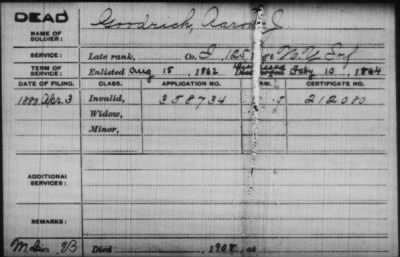 DEAD
NAME OF SOLDIER: Goodrich, Aaron J
SERVICE: Late rank, Co. I, 125 N.Y. Inf
TERM OF SERVICE: Enlisted Aug 15, 1862 Discharged Feby 10, 1864
DATE OF FILING. CLASS. APPLICATION NO. LAW. CERTIFICATE NO.
1880 Apr. 3 Invalid, 358734 212080
Widow,
Minor,
ADDITIONAL SERVICES:
REMARKS:
Died , 1908, at